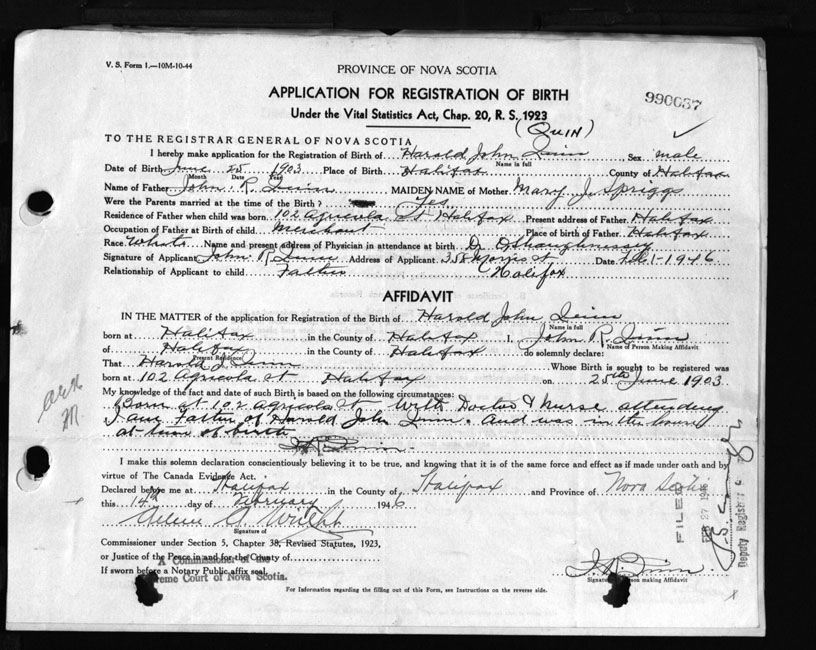 V. S. Form 1.—10M-10-44
PROVINCE OF NOVA SCOTIA
APPLICATION FOR REGISTRATION OF BIRTH
990037
Under the Vital Statistics Act, Chap. 20, R. S. 1923
(QUIN)
TO THE REGISTRAR GENERAL OF NOVA SCOTIA
I hereby make application for the Registration of Birth of Harold John Quinn Sex male
Name in full
Date of Birth June 25 1903 Place of Birth Halifax County of Halifax
Month Date Year
Name of Father John R Quinn MAIDEN NAME of Mother Mary J. Spriggs
Were the Parents married at the time of the Birth? Yes
Residence of Father when child was born 102 Agricola St Halifax Present address of Father Halifax
Occupation of Father at Birth of child Merchant Place of birth of Father Halifax
Race White Name and present address of Physician in attendance at birth Dr O'Shaughnessey
Signature of Applicant John R Quinn Address of Applicant 358 Morris St Date Feb 1-1946
Relationship of Applicant to child Father Halifax
AFFIDAVIT
IN THE MATTER of the application for Registration of the Birth of Harold John Quinn
Name in full
born at Halifax in the County of Halifax I, John R. Quinn
Name of Person Making Affidavit
of Halifax in the County of Halifax do solemnly declare:
Present Residence
That Harold J Quinn Whose Birth is sought to be registered was
born at 102 Agricola St Halifax on 25th June 1903
My knowledge of the fact and date of such Birth is based on the following circumstances:
Born at 102 Agricola St With Doctor & Nurse attending
I am Father of Harold John Quinn. And was in the house
at time of birth
J R Quinn.
I make this solemn declaration conscientiously believing it to be true, and knowing that it is of the same force and effect as if made under oath and by
virtue of The Canada Evidence Act.
Declared before me at Halifax in the County of Halifax and Province of Nova Scotia
this 14th day of February 1946
Signature of
Commissioner under Section 5, Chapter 38, Revised Statutes, 1923,
or Justice of the Peace in and for the County of
A Commissioner of the
If sworn before a Notary Public affix seal.
Supreme Court of Nova Scotia.
J R Quinn
Signature of Person making Affidavit
For Information regarding the filling out of this Form, see Instructions on the reverse side.
FILED
FEB 27 1946
Deputy Registrar